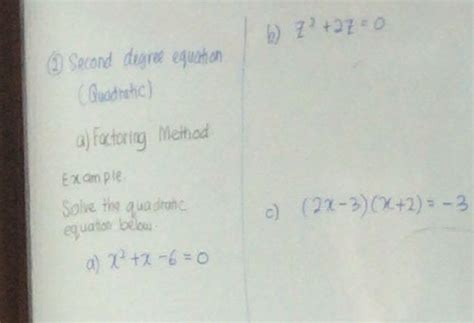 ② Second degree equation
(Quadratic)
a) Factoring Method
Example.
Solve the quadratic
equation below.
a) x² + x - 6 = 0
b) z² + 2z = 0
c) (2x-3)(x+2) = -3